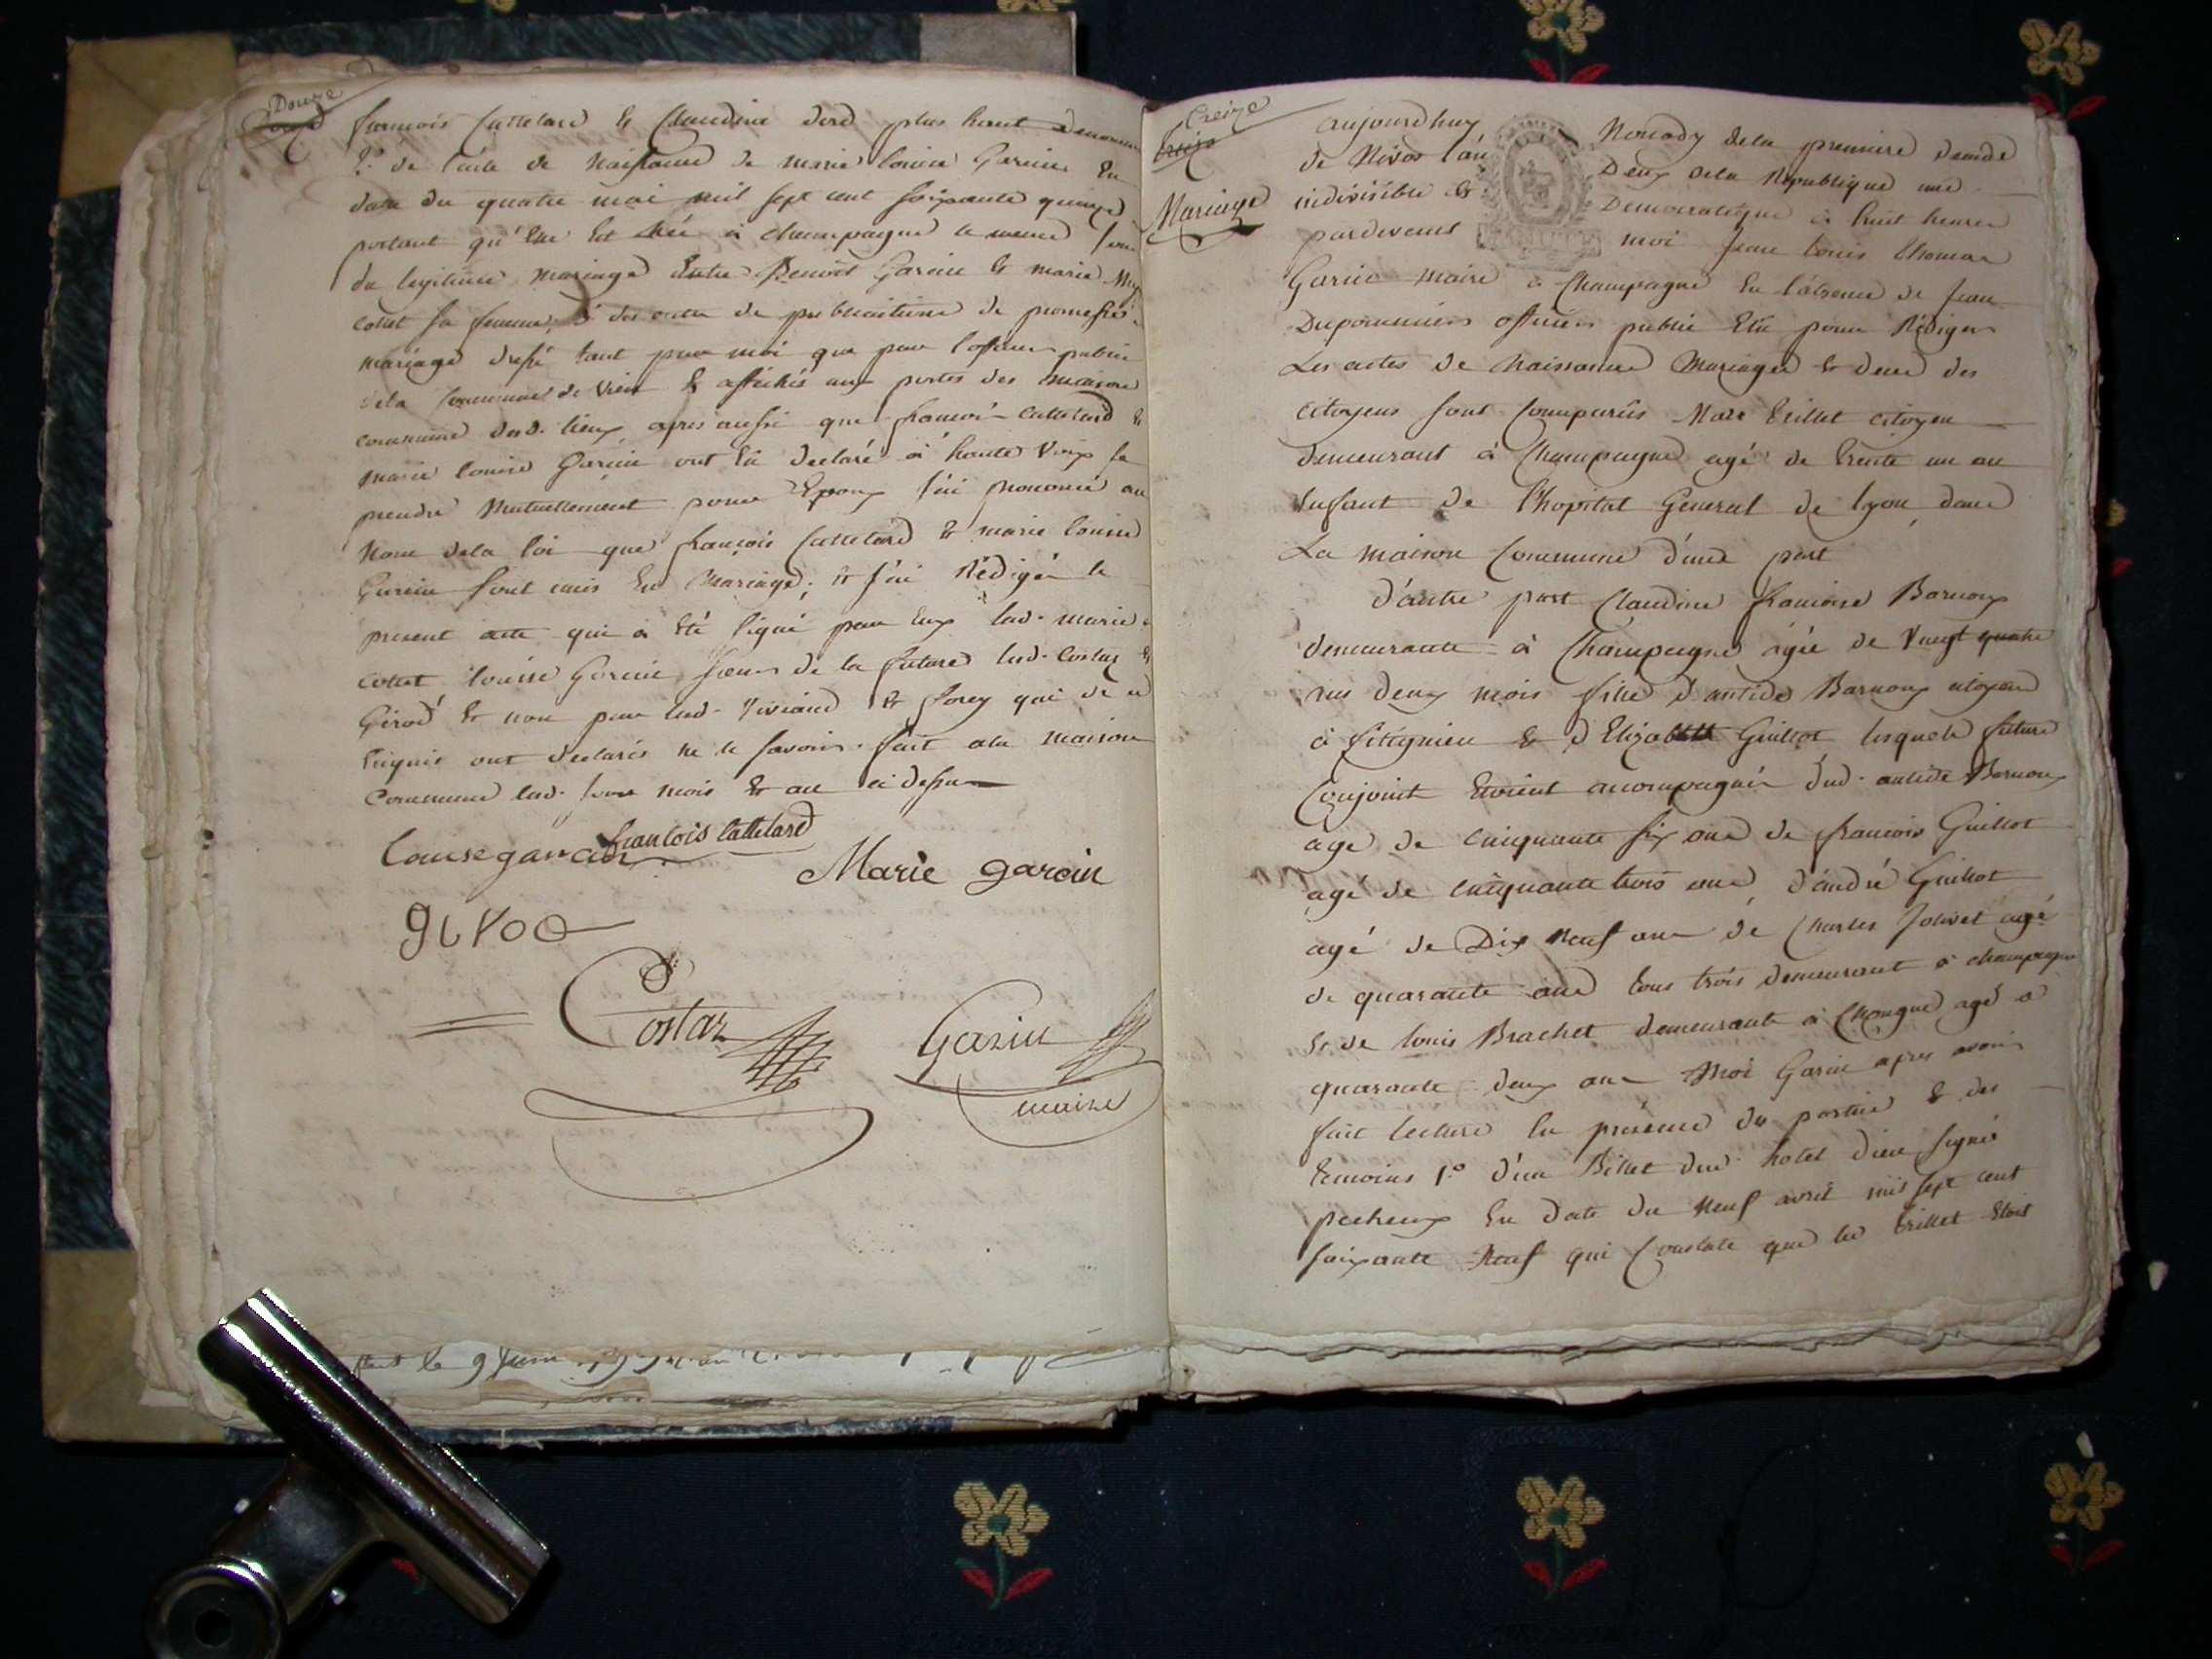 Douze
françois Cattelard & Claudine derd plus haut denommé
2.º de l'acte de Naissance de marie louise Garin En
date du quatre mai mil sept cent soixante quinze
portant qu'Elle Est Née à champagne le meme jour
du legitime mariage Entre Benoit Garin & marie
Collet sa femme, 3 des actes de publications de promesses
mariage dressé tant par moi que par l'officier public
dela Commune de Vieu & affichés aux portes des maisons
commune desd. lieux apres aussi que françois Cattelard &
marie louise Garin ont Eu declaré à haute Voix se
prendre Mutuellement pour Epoux j'ai prononcé au
Nom dela loi que françois Cattelard & marie louise
Garin sont unis En Mariage; & j'ai Rédigé le
present acte qui à Eté signé par Eux lad. marie
Collet louise Garin soeur de la future led. Costaz &
Girod & non par led. Viviand & forey qui de ce
Enquis ont declarés ne le savoir. fait ala maison
Commune led. jour mois & an ci dessus
françois Cattelard
Louise garain
Marie garain
girod
Costaz
Garin
maire
le 9 Juin
Treize
treize
Mariage
aujourdhuy Nonody dela premiere decade
de Nivos l'an Deux dela Republique une
indivisible & Democratique à huit heures
pardevant moi Jean Louis thomas
Garin maire à Champagne En l'absence de Jean
Dupommier officier public Elu pour Rédiger
Les actes de Naissance Mariages & deces des
citoyens sont Comparûs Marc trillet citoyen
demeurant à Champagne agé de trente un an
Enfant de l'hopital General de lyon, dans
La maison Commune d'une part
d'autre part Claudine françoise Barnoux
demeurante à Champagne agée de Vingt quatre
ans deux mois fille d'antide Barnoux citoyen
à fitignieu & d'Elizabeth Guillot lesquels futurs
Conjoint Etoient accompagnés dud. antide Barnoux
agé de cinquante six ans de françois Guillot
agé de cinquante trois ans, d'andré Guillot
agé de Dix Neuf ans de Charles Jolivet agé
de quarante ans tous trois demeurant à champagne
& de louis Brachet demeurante à Chongne agé d
quarante deux ans Moi Garin apres avoir
fait lecture En présence des parties & des
temoins 1.º d'un Billet dud. hotel dieu signé
pecheux En date du Neuf avril mil sept cent
soixante Neuf qui Constate que led trillet Etoit